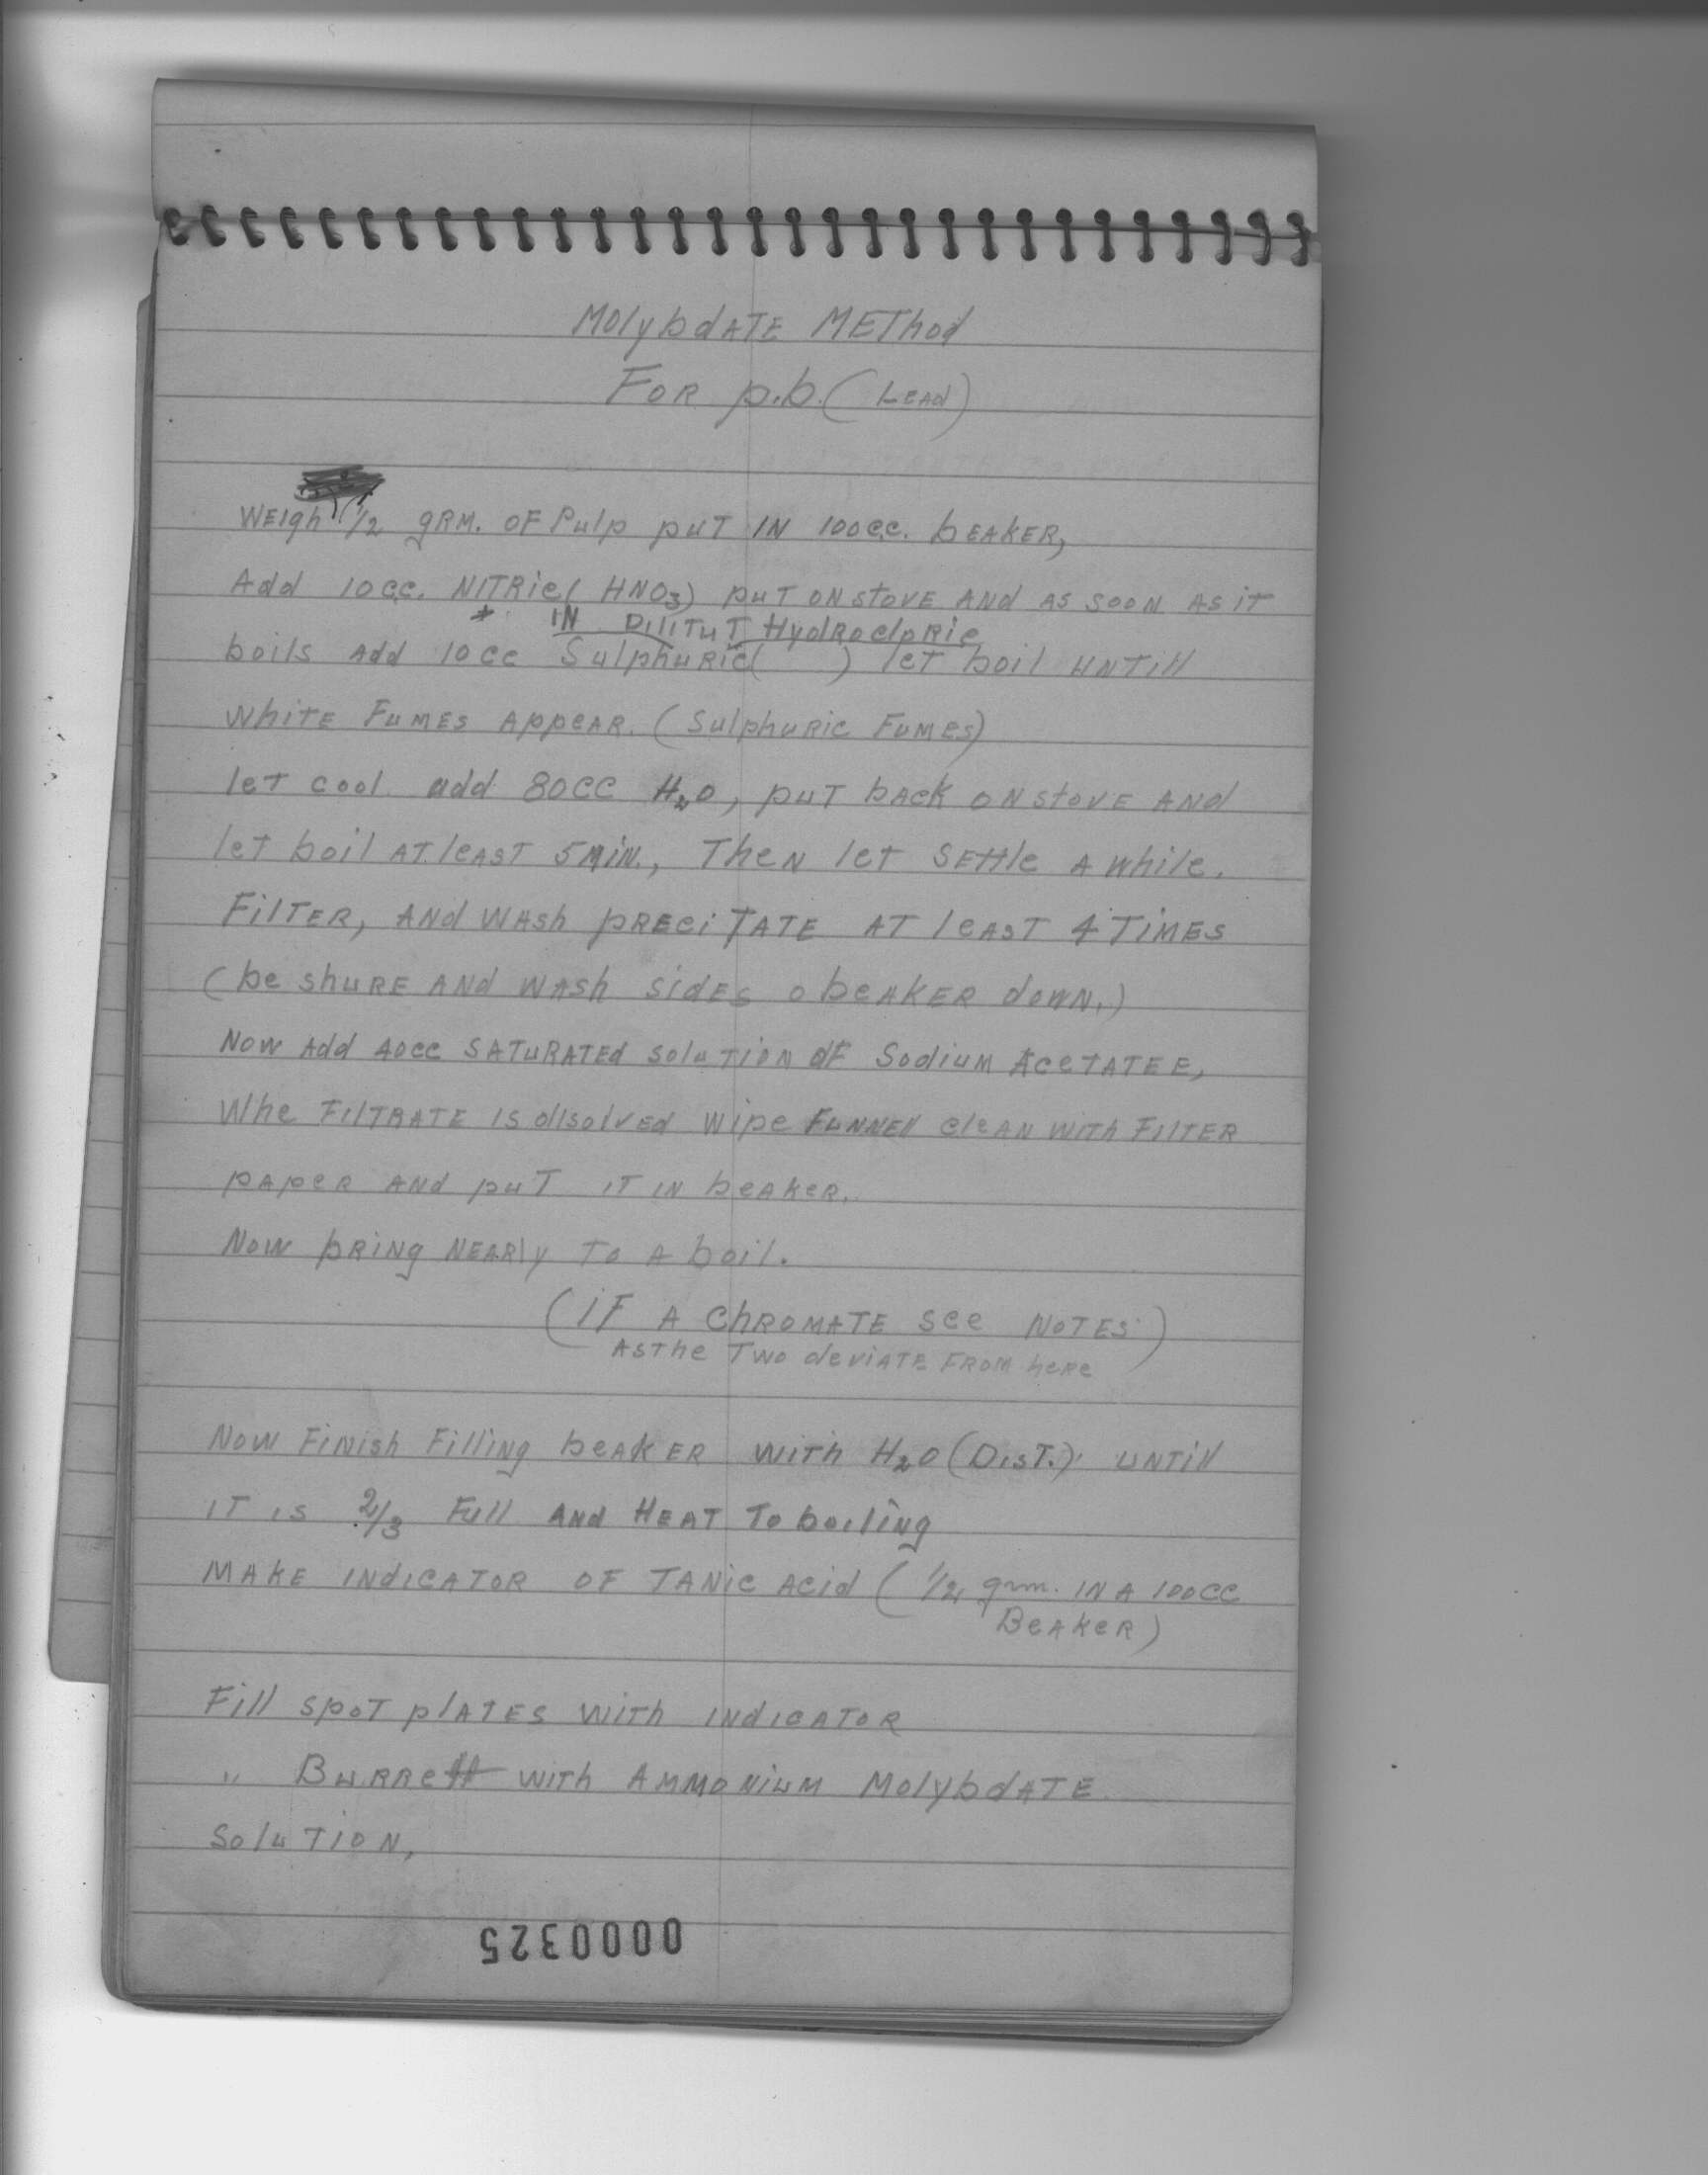 Molybdate Method
For p.b. (Lead)
Weigh 1/2 grm. of Pulp put in 100 c.c. beaker,
Add 10 c.c. Nitric (HNO3) put on stove and as soon as it
* in Dilitut Hydroclpric
boils add 10 cc Sulphuric (     ) let boil untill
white fumes appear. (Sulphuric Fumes)
let cool. add 80cc H2O, put back on stove and
let boil at least 5 min., Then let settle a while.
Filter, and wash precitate at least 4 times
(be shure and wash sides o beaker down.)
Now add 40cc saturated solution of Sodium Acetatee,
Whe filtrate is disolved wipe funnell clean with filter
paper and put it in beaker.
Now bring nearly to a boil.
(if a chromate see notes)
as the two deviate from here
Now finish filling beaker with H2O (Dist.) untill
it is 2/3 full and heat to boiling
Make indicator of Tanic Acid (1/2 grm. in a 100cc
Beaker)
Fill spot plates with indicator
" Burrett with Ammonium Molybdate
Solution,
0000325